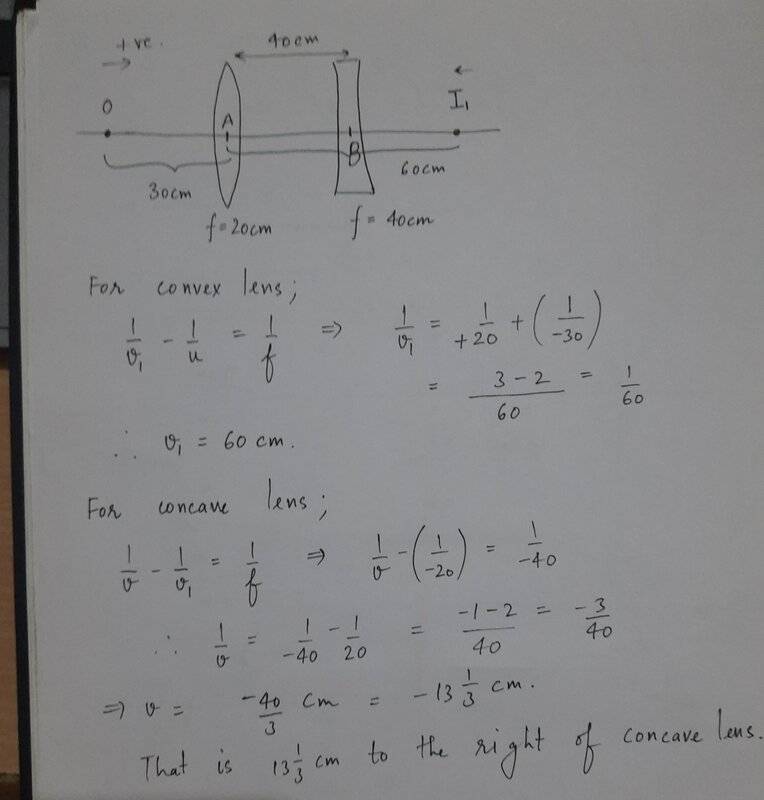 +ve.
40cm
O
A
B
I₁
30cm
60cm
f = 20cm
f = 40cm
For convex lens;
1/v₁ - 1/u = 1/f ⇒ 1/v₁ = 1/+20 + (1/-30)
= 3 - 2/60 = 1/60
∴ v₁ = 60 cm.
For concave lens;
1/v - 1/v₁ = 1/f ⇒ 1/v - (1/-20) = 1/-40
∴ 1/v = 1/-40 - 1/20 = -1-2/40 = -3/40
⇒ v = -40/3 cm = -13 1/3 cm.
That is 13 1/3 cm to the right of concave lens.